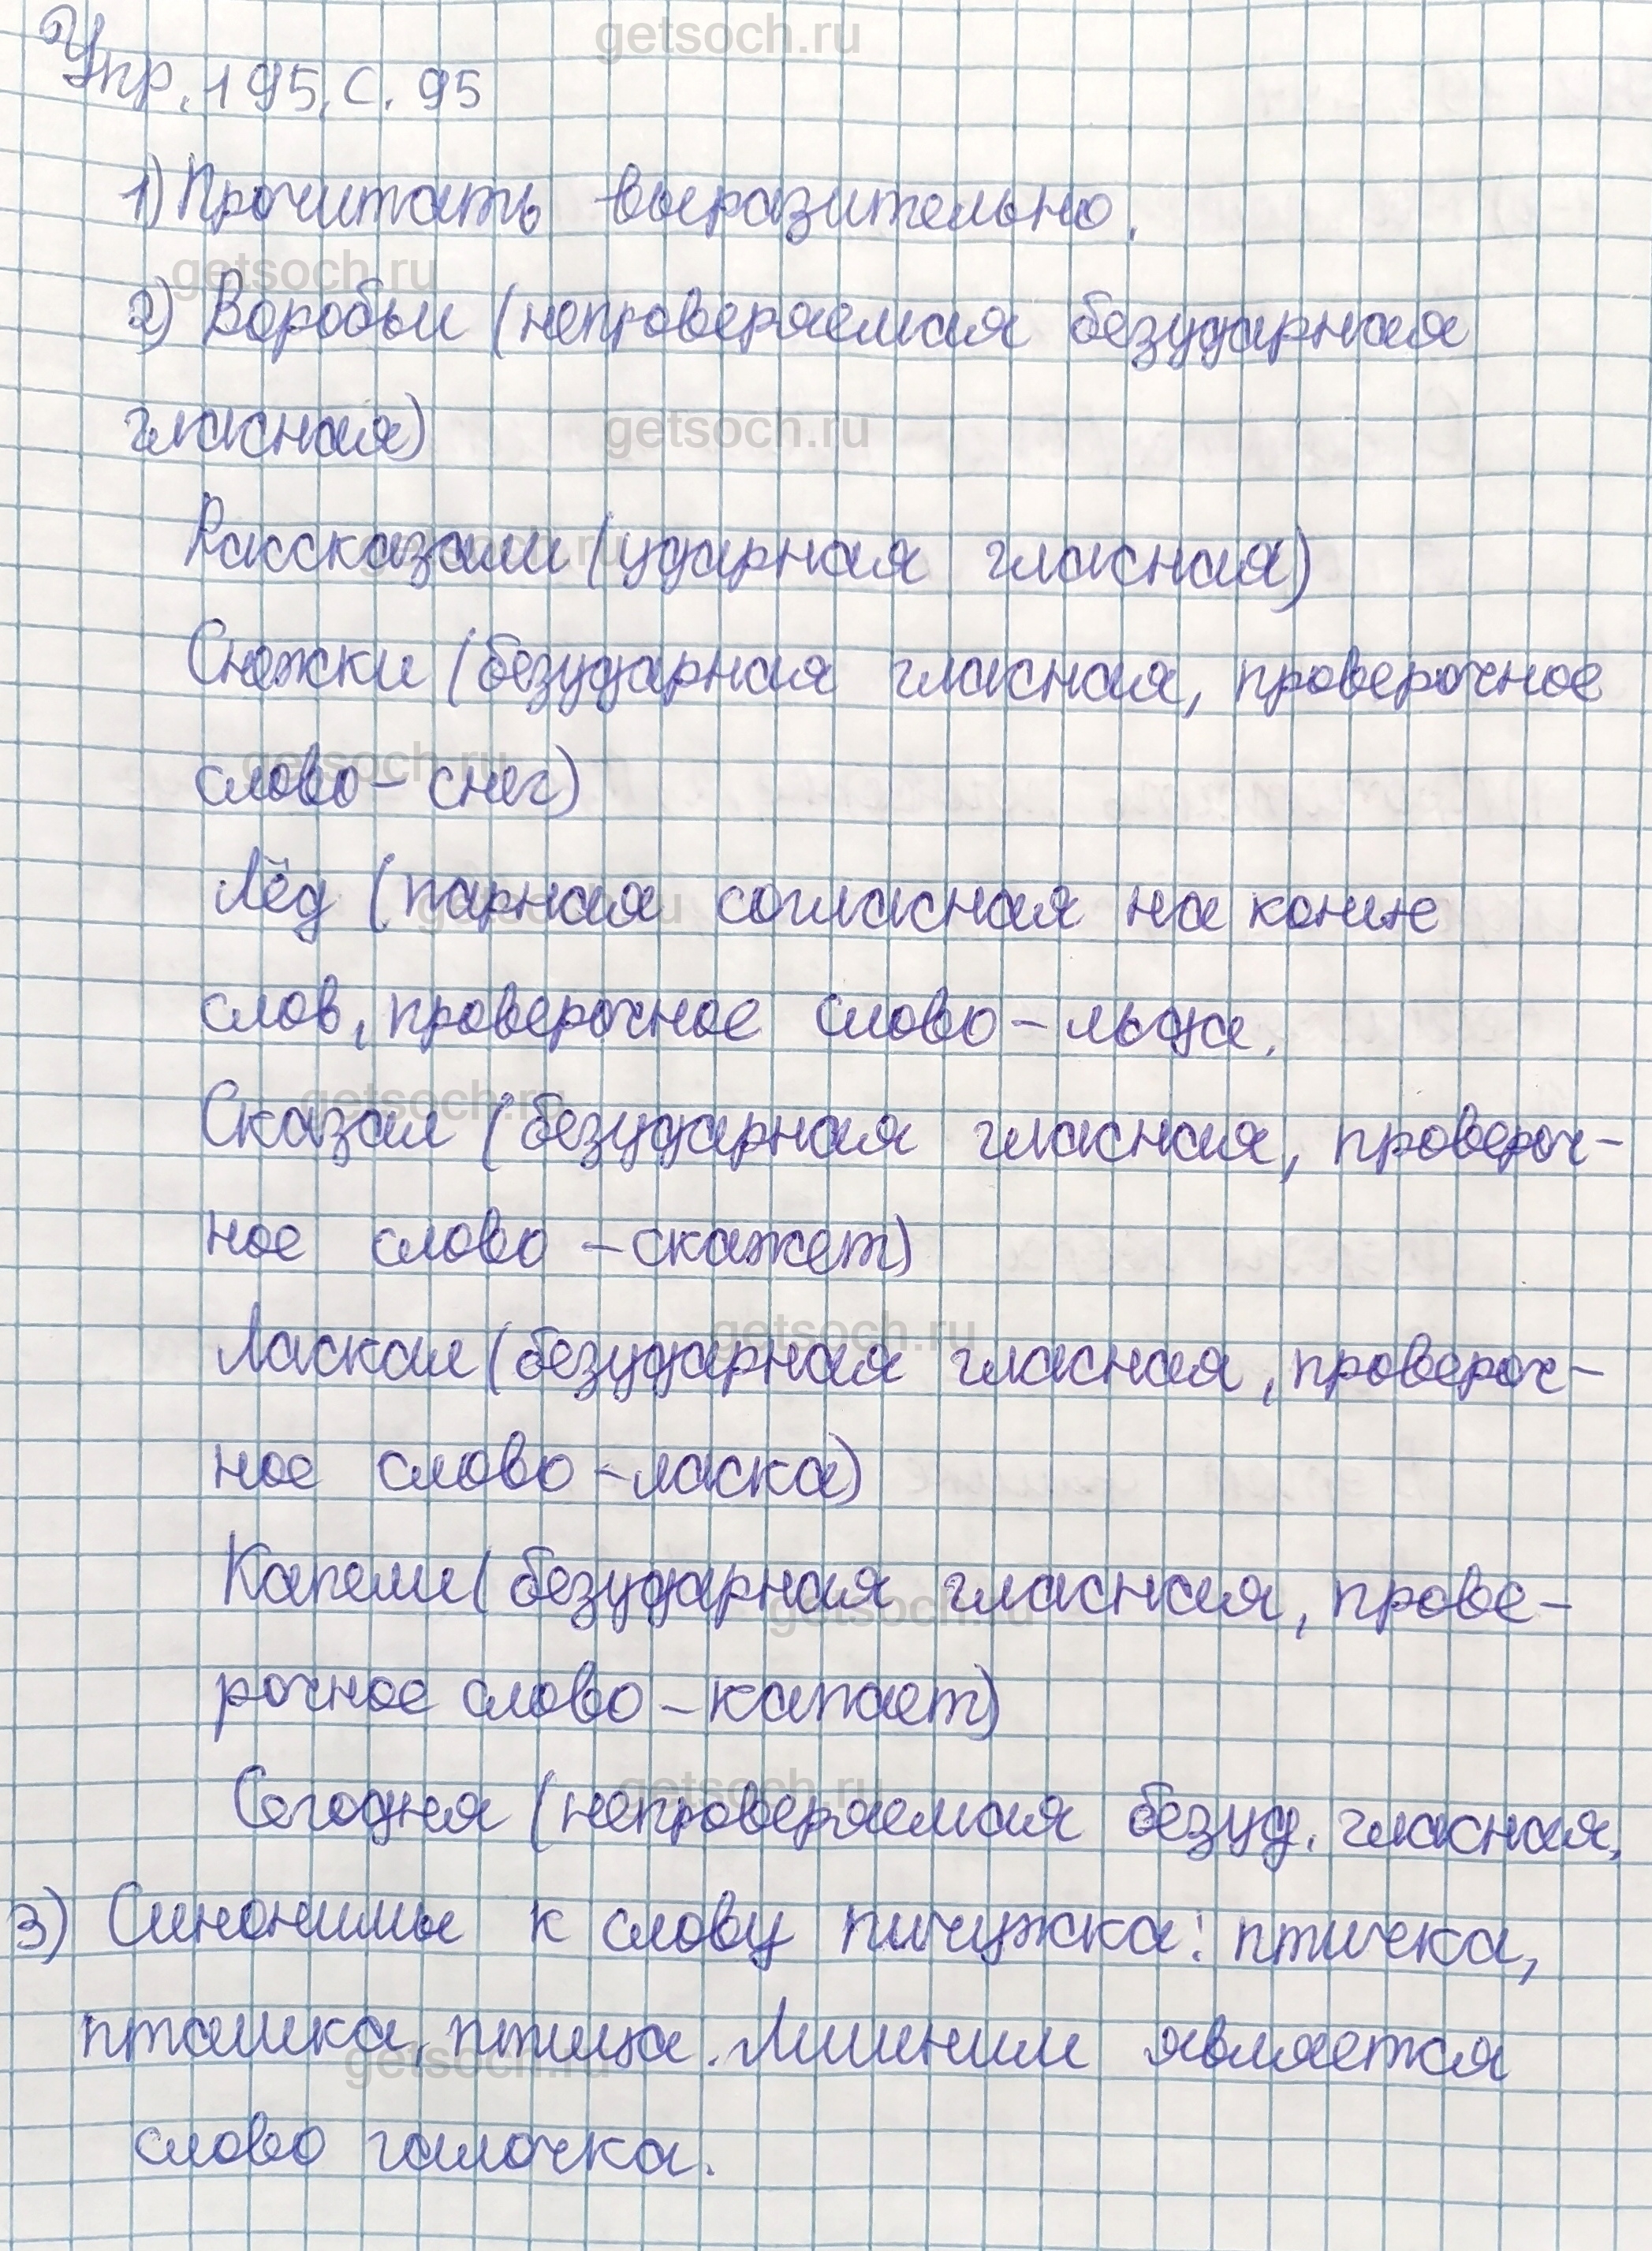 getsoch.ru
Упр. 195, с. 95
1) Прочитать выразительно.
getsoch.ru
2) Воробьи (непроверяемая безударная
гласная)
getsoch.ru
Рассказали (ударная гласная)
Снежки (безударная гласная, проверочное
слово - снег)
getsoch.ru
Лёд (парная согласная на конце
слов, проверочное слово - льда.
getsoch.ru
Сказал (безударная гласная, провероч-
ное слово - скажет)
getsoch.ru
Ласкал (безударная гласная, провероч-
ное слово - ласка)
Капели (безударная гласная, прове-
getsoch.ru
рочное слово - капает)
getsoch.ru
Сегодня (непроверяемая безуд. гласная,
3) Синонимы к слову пичужка: птичка,
пташка, птица. Лишним является
getsoch.ru
слово галочка.